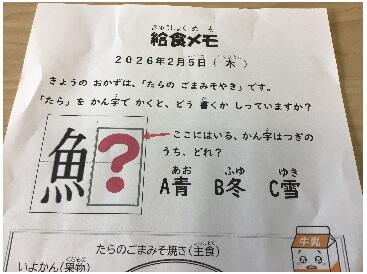 きゅうしょく めも
給食メモ
２０２６年２月５日（木）
きょうの おかずは、「たらの ごまみそやき」です。
「たら」を かん字で かくと、どう 書くか しっていますか？
魚？
ここにはいる、かん字はつぎの
うち、どれ？
あお ふゆ ゆき
A青 B冬 C雪
たらのごまみそ焼き（主食）
いよかん（果物）
牛乳